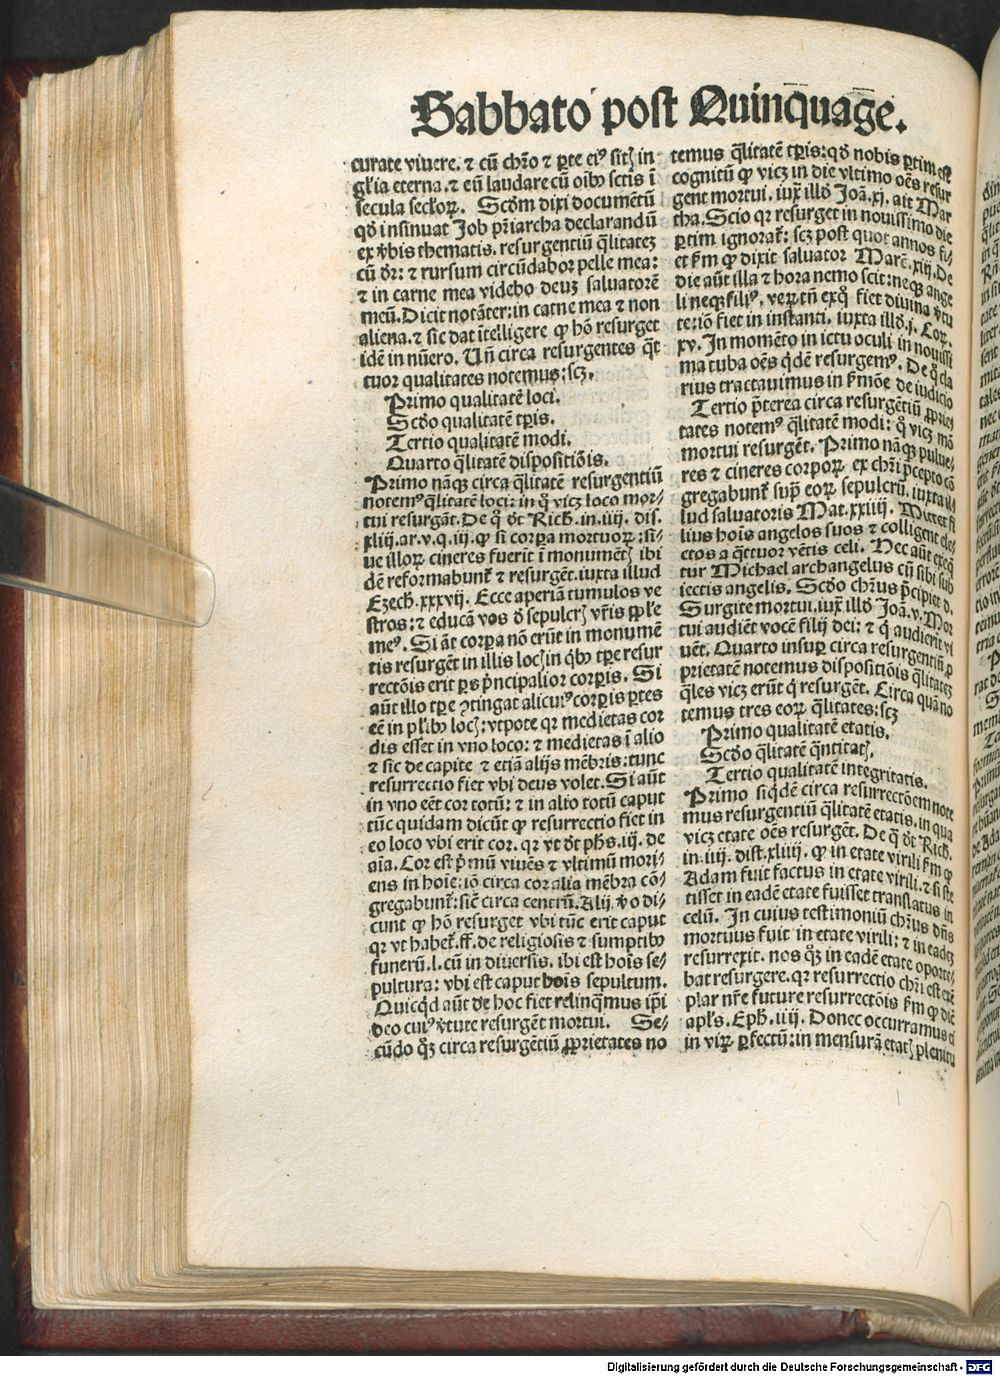 Sabbato post Quinquage.
curate viuere. ⁊ cū chr̄o ⁊ p̱te eiꝰ sitꝭ in
gl̄ia eterna. ⁊ eū laudare cū oībꝰ sctis ī
secula secl̄oꝝ. Scd̄m dixi documētū
qd̄ insinuat Job pr̄iarcha declarandū
ex v̄bis thematis. resurgentiū q̄litateʒ
cū dr̄: ⁊ rursum circūdabor pelle mea:
⁊ in carne mea videbo deuʒ saluatorē
meū. Dicit notāter: in carne mea ⁊ non
aliena. ⁊ sic dat ītelligere ꝙ hō resurget
idē in nūero. Un̄ circa resurgentes q̄t
tuor qualitates notemus: scʒ.
Primo qualitatē loci.
Scd̄o qualitatē tp̄is.
Tertio qualitatē modi.
Quarto q̄litatē dispositiōis.
Primo nāqꝫ circa q̄litatē resurgentiū
notemꝰ q̄litatē loci: in q̊ vicʒ loco mor-
tui resurgāt. De q̊ dt̄ Rich. in. iiij. dis.
xliij. ar. v. q. iij. ꝙ si corp̱a mortuoꝝ: si-
ue illoꝝ cineres fuerit ī monumētꝭ ibi
dē reformabunt᷑ ⁊ resurgēt. iuxta illud
Ezech. xxxvij. Ecce aperiā tumulos ve
stros: ⁊ educā vos d̄ sepulcrꝭ vr̄is pp̄l̄e
meꝰ. Si āt corp̱a nō erūt in monumē
tis resurgēt in illis locꝭ in q̇bꝰ tp̄e resur
rectōis erit p̱s pṅcipalior corp̱is. Si
aūt illo tp̄e ꝯtingat alicuiꝰ corp̱is p̱tes
eē in pl̄ibꝰ locꝭ: vtpote qr medietas cor
dis esset in vno loco: ⁊ medietas ī alio
⁊ sic de capite ⁊ etiā alijs mēbris: tunc
resurrectio fiet vbi deus volet. Si aūt
in vno eēt cor totū: ⁊ in alio totū caput
tūc quidam dicūt ꝙ resurrectio fiet in
eo loco vbi erit cor. qr vt dt̄ ph̄s. iij. de
aīa. Cor est pṁū viuēs ⁊ vltimū morj-
ens in hoīe: iō circa cor alia mēbra cō-
gregabunt᷑: sic̄ circa centrū. Alij v̄o di-
cunt ꝙ hō resurget vbi tūc erit caput
qr vt habet᷑. ff. de religiosis ⁊ sumptibꝰ
funerū. l. cū in diuersis. ibi est hoīs se-
pultura: vbi est caput hoīs sepultum.
Quicq̇d aūt de hoc fiet relinq̄mus ip̄i
deo cuiꝰ v̄tute resurgēt mortui. Se-
cūdo q̊ʒ circa resurgētiū ꝓprietates no
temus q̄litatē tp̄is: qd̄ nobis p̱tim est
cognitū ꝙ vicʒ in die vltimo oēs resur
gent mortui. iux̄ illd̄ Joā. xj. ait Mar
tha. Scio qr resurget in nouissimo die
p̱tim ignorat᷑: scʒ post quot annos fi-
et ẜm ꝙ dixit saluator Marc̄. xiij. De
die aūt illa ⁊ hora nemo scit: neqꝫ ange
li neqꝫ filiꝰ. veꝝtn̄ exq̊ fiet diuina v̄tu
te: iō fiet in instanti. iuxta illd̄. j. Cor.
xv. In momēto in ictu oculi in nouissi
ma tuba oēs q̇dē resurgemꝰ. De q̊ cla
rius tractauimus in ẜmōe de iudicio
Tertio pt̄erea circa resurgētiū ꝓprie
tates notemꝰ q̄litatē modi: q̊ vicʒ mō
mortui resurgēt. Primo nāqꝫ pulue-
res ⁊ cineres corpoꝝ ex chr̄i pc̄epto cō
gregabunt᷑ sup̱ eoꝝ sepulcrū. iuxta il-
lud saluatoris Mat. xxiiij. Mittet fi
lius hoīs angelos suos ⁊ colligent ele-
ctos a q̄ttuor vētis celi. Nec aūt exeq̄
tur Michael archangelus cū sibi sub
iectis angelis. Scd̄o chr̄us pc̄ipiet d.
Surgite mortui. iux̄ illd̄ Joā. v. Mor
tui audiēt vocē filij dei: ⁊ q̇ audierīt vi
uēt. Quarto insup̱ circa resurgentiū ꝓ
prietatē notemus dispositiōis q̄litateʒ
q̄les vicʒ erūt q̇ resurgēt. Circa quā no
temus tres eoꝝ q̄litates: scʒ
Primo qualitatē etatis.
Scd̄o q̄litatē q̄ntitatꝭ.
Tertio qualitatē integritatis.
Primo siq̇dē circa resurrectōem note
mus resurgentiū q̄litatē etatis. in qua
vicʒ etate oēs resurgēt. De q̊ dt̄ Rich.
in. iiij. dist. xliiij. ꝙ in etate virili ẜm ꝙ
Adam fuit factus in etate virili. ⁊ si ste
tisset in eadē etate fuisset translatus in
celū. In cuius testimoniū chr̄us dn̄s
mortuus fuit in etate virili: ⁊ in eadeʒ
resurrexit. nos q̊ʒ in eadē etate oporte-
bat resurgere. qr resurrectio chr̄i est exē
plar nr̄e future resurrectōis ẜm ꝙ dic̄
apl̄s. Eph. iiij. Donec occurramus ei
in viꝝ p̱fectū: in mensurā etatꝭ plenitu
Digitalisierung gefördert durch die Deutsche Forschungsgemeinschaft - DFG